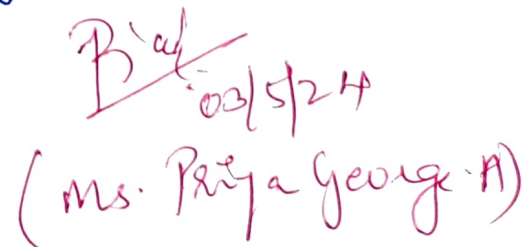 03/5/24
(Ms. Priya George. A)